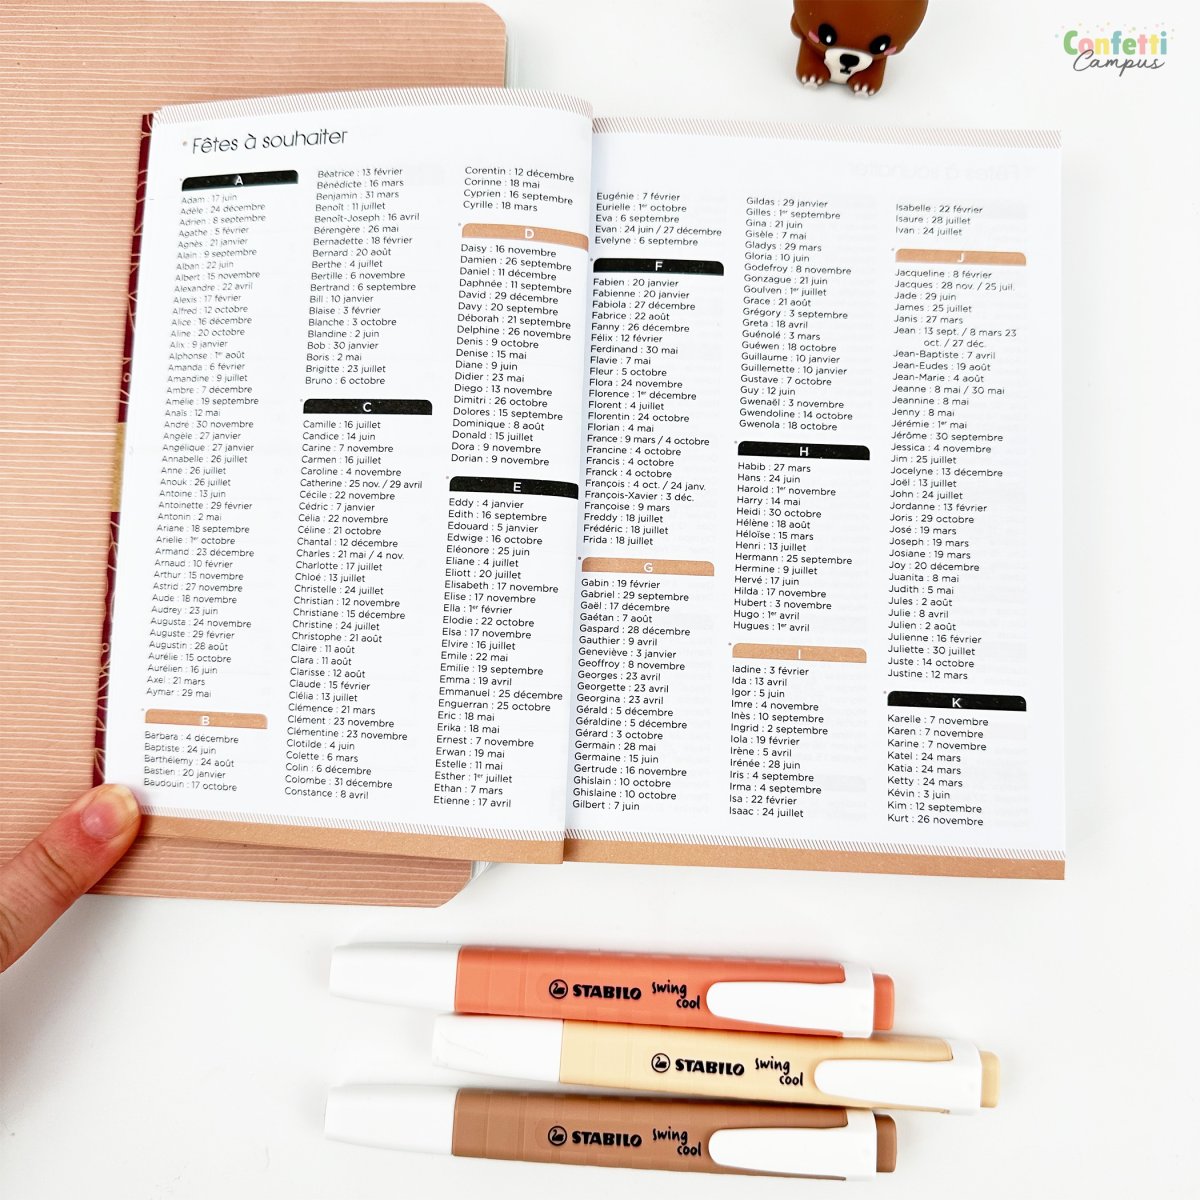 Confetti
Campus
Fêtes à souhaiter
A
Adam : 17 juin
Adèle : 24 décembre
Adrien : 8 septembre
Agathe : 5 février
Agnès : 21 janvier
Alain : 9 septembre
Alban : 22 juin
Albert : 15 novembre
Alexandre : 22 avril
Alexis : 17 février
Alfred : 12 octobre
Alice : 16 décembre
Aline : 20 octobre
Alix : 9 janvier
Alphonse : 1er août
Amanda : 6 février
Amandine : 9 juillet
Ambre : 7 décembre
Amélie : 19 septembre
Anaïs : 12 mai
André : 30 novembre
Angèle : 27 janvier
Angélique : 27 janvier
Annabelle : 26 juillet
Anne : 26 juillet
Anouk : 26 juillet
Antoine : 13 juin
Antoinette : 29 février
Antonin : 2 mai
Ariane : 18 septembre
Arielle : 1er octobre
Armand : 23 décembre
Arnaud : 10 février
Arthur : 15 novembre
Astrid : 27 novembre
Aude : 18 novembre
Audrey : 23 juin
Augusta : 24 novembre
Auguste : 29 février
Augustin : 28 août
Aurélie : 15 octobre
Aurélien : 16 juin
Axel : 21 mars
Aymar : 29 mai
B
Barbara : 4 décembre
Baptiste : 24 juin
Barthélemy : 24 août
Bastien : 20 janvier
Baudouin : 17 octobre
Béatrice : 13 février
Bénédicte : 16 mars
Benjamin : 31 mars
Benoît : 11 juillet
Benoît-Joseph : 16 avril
Bérengère : 26 mai
Bernadette : 18 février
Bernard : 20 août
Berthe : 4 juillet
Bertille : 6 novembre
Bertrand : 6 septembre
Bill : 10 janvier
Blaise : 3 février
Blanche : 3 octobre
Blandine : 2 juin
Bob : 30 janvier
Boris : 2 mai
Brigitte : 23 juillet
Bruno : 6 octobre
C
Camille : 16 juillet
Candice : 14 juin
Carine : 7 novembre
Carmen : 16 juillet
Caroline : 4 novembre
Catherine : 25 nov. / 29 avril
Cécile : 22 novembre
Cédric : 7 janvier
Célia : 22 novembre
Céline : 21 octobre
Chantal : 12 décembre
Charles : 21 mai / 4 nov.
Charlotte : 17 juillet
Chloé : 13 juillet
Christelle : 24 juillet
Christian : 12 novembre
Christiane : 15 décembre
Christine : 24 juillet
Christophe : 21 août
Claire : 11 août
Clara : 11 août
Clarisse : 12 août
Claude : 15 février
Clélia : 13 juillet
Clémence : 21 mars
Clément : 23 novembre
Clémentine : 23 novembre
Clotilde : 4 juin
Colette : 6 mars
Colin : 6 décembre
Colombe : 31 décembre
Constance : 8 avril
Corentin : 12 décembre
Corinne : 18 mai
Cyprien : 16 septembre
Cyrille : 18 mars
D
Daisy : 16 novembre
Damien : 26 septembre
Daniel : 11 décembre
Daphnée : 11 septembre
David : 29 décembre
Davy : 20 septembre
Déborah : 21 septembre
Delphine : 26 novembre
Denis : 9 octobre
Denise : 15 mai
Diane : 9 juin
Didier : 23 mai
Diego : 13 novembre
Dimitri : 26 octobre
Dolores : 15 septembre
Dominique : 8 août
Donald : 15 juillet
Dora : 9 novembre
Dorian : 9 novembre
E
Eddy : 4 janvier
Edith : 16 septembre
Edouard : 5 janvier
Edwige : 16 octobre
Eléonore : 25 juin
Eliane : 4 juillet
Eliott : 20 juillet
Elisabeth : 17 novembre
Elise : 17 novembre
Ella : 1er février
Elodie : 22 octobre
Elsa : 17 novembre
Elvire : 16 juillet
Emile : 22 mai
Emilie : 19 septembre
Emma : 19 avril
Emmanuel : 25 décembre
Enguerran : 25 octobre
Eric : 18 mai
Erika : 18 mai
Ernest : 7 novembre
Erwan : 19 mai
Estelle : 11 mai
Esther : 1er juillet
Ethan : 7 mars
Etienne : 17 avril
Eugénie : 7 février
Eurielle : 1er octobre
Eva : 6 septembre
Evan : 24 juin / 27 décembre
Evelyne : 6 septembre
F
Fabien : 20 janvier
Fabienne : 20 janvier
Fabiola : 27 décembre
Fabrice : 22 août
Fanny : 26 décembre
Félix : 12 février
Ferdinand : 30 mai
Flavie : 7 mai
Fleur : 5 octobre
Flora : 24 novembre
Florence : 1er décembre
Florent : 4 juillet
Florentin : 24 octobre
Florian : 4 mai
France : 9 mars / 4 octobre
Francine : 4 octobre
Francis : 4 octobre
Franck : 4 octobre
François : 4 oct. / 24 janv.
François-Xavier : 3 déc.
Françoise : 9 mars
Freddy : 18 juillet
Frédéric : 18 juillet
Frida : 18 juillet
G
Gabin : 19 février
Gabriel : 29 septembre
Gaël : 17 décembre
Gaétan : 7 août
Gaspard : 28 décembre
Gauthier : 9 avril
Geneviève : 3 janvier
Geoffroy : 8 novembre
Georges : 23 avril
Georgette : 23 avril
Georgina : 23 avril
Gérald : 5 décembre
Géraldine : 5 décembre
Gérard : 3 octobre
Germain : 28 mai
Germaine : 15 juin
Gertrude : 16 novembre
Ghislain : 10 octobre
Ghislaine : 10 octobre
Gilbert : 7 juin
Gildas : 29 janvier
Gilles : 1er septembre
Gina : 21 juin
Gisèle : 7 mai
Gladys : 29 mars
Gloria : 10 juin
Godefroy : 8 novembre
Gonzague : 21 juin
Goulven : 1er juillet
Grace : 21 août
Grégory : 3 septembre
Greta : 18 avril
Guénolé : 3 mars
Guéwen : 18 octobre
Guillaume : 10 janvier
Guillemette : 10 janvier
Gustave : 7 octobre
Guy : 12 juin
Gwenaël : 3 novembre
Gwendoline : 14 octobre
Gwenola : 18 octobre
H
Habib : 27 mars
Hans : 24 juin
Harold : 1er novembre
Harry : 14 mai
Heidi : 30 octobre
Hélène : 18 août
Héloïse : 15 mars
Henri : 13 juillet
Hermann : 25 septembre
Hermine : 9 juillet
Hervé : 17 juin
Hilda : 17 novembre
Hubert : 3 novembre
Hugo : 1er avril
Hugues : 1er avril
I
Iadine : 3 février
Ida : 13 avril
Igor : 5 juin
Imre : 4 novembre
Inès : 10 septembre
Ingrid : 2 septembre
Iola : 19 février
Irène : 5 avril
Irénée : 28 juin
Iris : 4 septembre
Irma : 4 septembre
Isa : 22 février
Isaac : 24 juillet
Isabelle : 22 février
Isaure : 28 juillet
Ivan : 24 juillet
J
Jacqueline : 8 février
Jacques : 28 nov. / 25 juil.
Jade : 29 juin
James : 25 juillet
Janis : 27 mars
Jean : 13 sept. / 8 mars 23
oct. / 27 déc.
Jean-Baptiste : 7 avril
Jean-Eudes : 19 août
Jean-Marie : 4 août
Jeanne : 8 mai / 30 mai
Jeannine : 8 mai
Jenny : 8 mai
Jérémie : 1er mai
Jérôme : 30 septembre
Jessica : 4 novembre
Jim : 25 juillet
Jocelyne : 13 décembre
Joël : 13 juillet
John : 24 juillet
Jordanne : 13 février
Joris : 29 octobre
José : 19 mars
Joseph : 19 mars
Josiane : 19 mars
Joy : 20 décembre
Juanita : 8 mai
Judith : 5 mai
Jules : 2 août
Julie : 8 avril
Julien : 2 août
Julienne : 16 février
Juliette : 30 juillet
Juste : 14 octobre
Justine : 12 mars
K
Karelle : 7 novembre
Karen : 7 novembre
Karine : 7 novembre
Katel : 24 mars
Katia : 24 mars
Ketty : 24 mars
Kévin : 3 juin
Kim : 12 septembre
Kurt : 26 novembre
STABILO swing cool
STABILO swing cool
STABILO swing cool